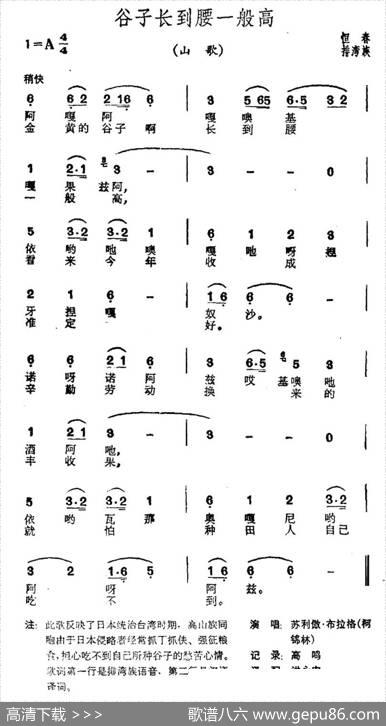 谷子长到腰一般高
1=A 4/4
(山歌)
恒春
排湾族
稍快
6 6 2 2 1 6 6 | 3 5 65 6·5 3 2 |
阿 嘎 阿 嘎 噢 基
金 黄的 谷子 啊 长 到 腰
1 2·1 3 - | 3 - - 0 |
嘎 果 兹阿,
一 般 高,
5 3·2 3·2 1 | 6 1 2 3 |
依 哟 吔 噢 嘎 吔 呀 捏
看 来 今 年 收 成
2 1 6 - | 1 6 6 6 - |
牙 捏 嘎 奴 沙。
准 定 好。
6 6 2 1 6 | 3 6·5 3 2 |
诺 呀 诺 阿 兹 哎 基噢 吔
辛 勤 劳 动 换 来 的
1 2 1 3 - | 3 - - 0 |
酒 阿 吔,
丰 收 果,
5 3·2 3·2 1 | 6 1 2 3·2 |
依 哟 瓦 那 奥 嘎 尼 哟
就 怕 种 田 人 自己
3 2 1·6 5 | 6 6 - - |
阿 呀 阿 兹。
吃 不 到。
注: 此歌反映了日本统治台湾时期,高山族同
胞由于日本侵略者经常抓丁抓伕、强征粮
食,担心吃不到自己所种谷子的愁苦心情。
歌词第一行是排湾族语音,第二行是
译词。
演唱:苏利傲·布拉格(柯
锦林)
记录:高鸣
高清下载 >>>
歌谱八六 → www.gepu86.com